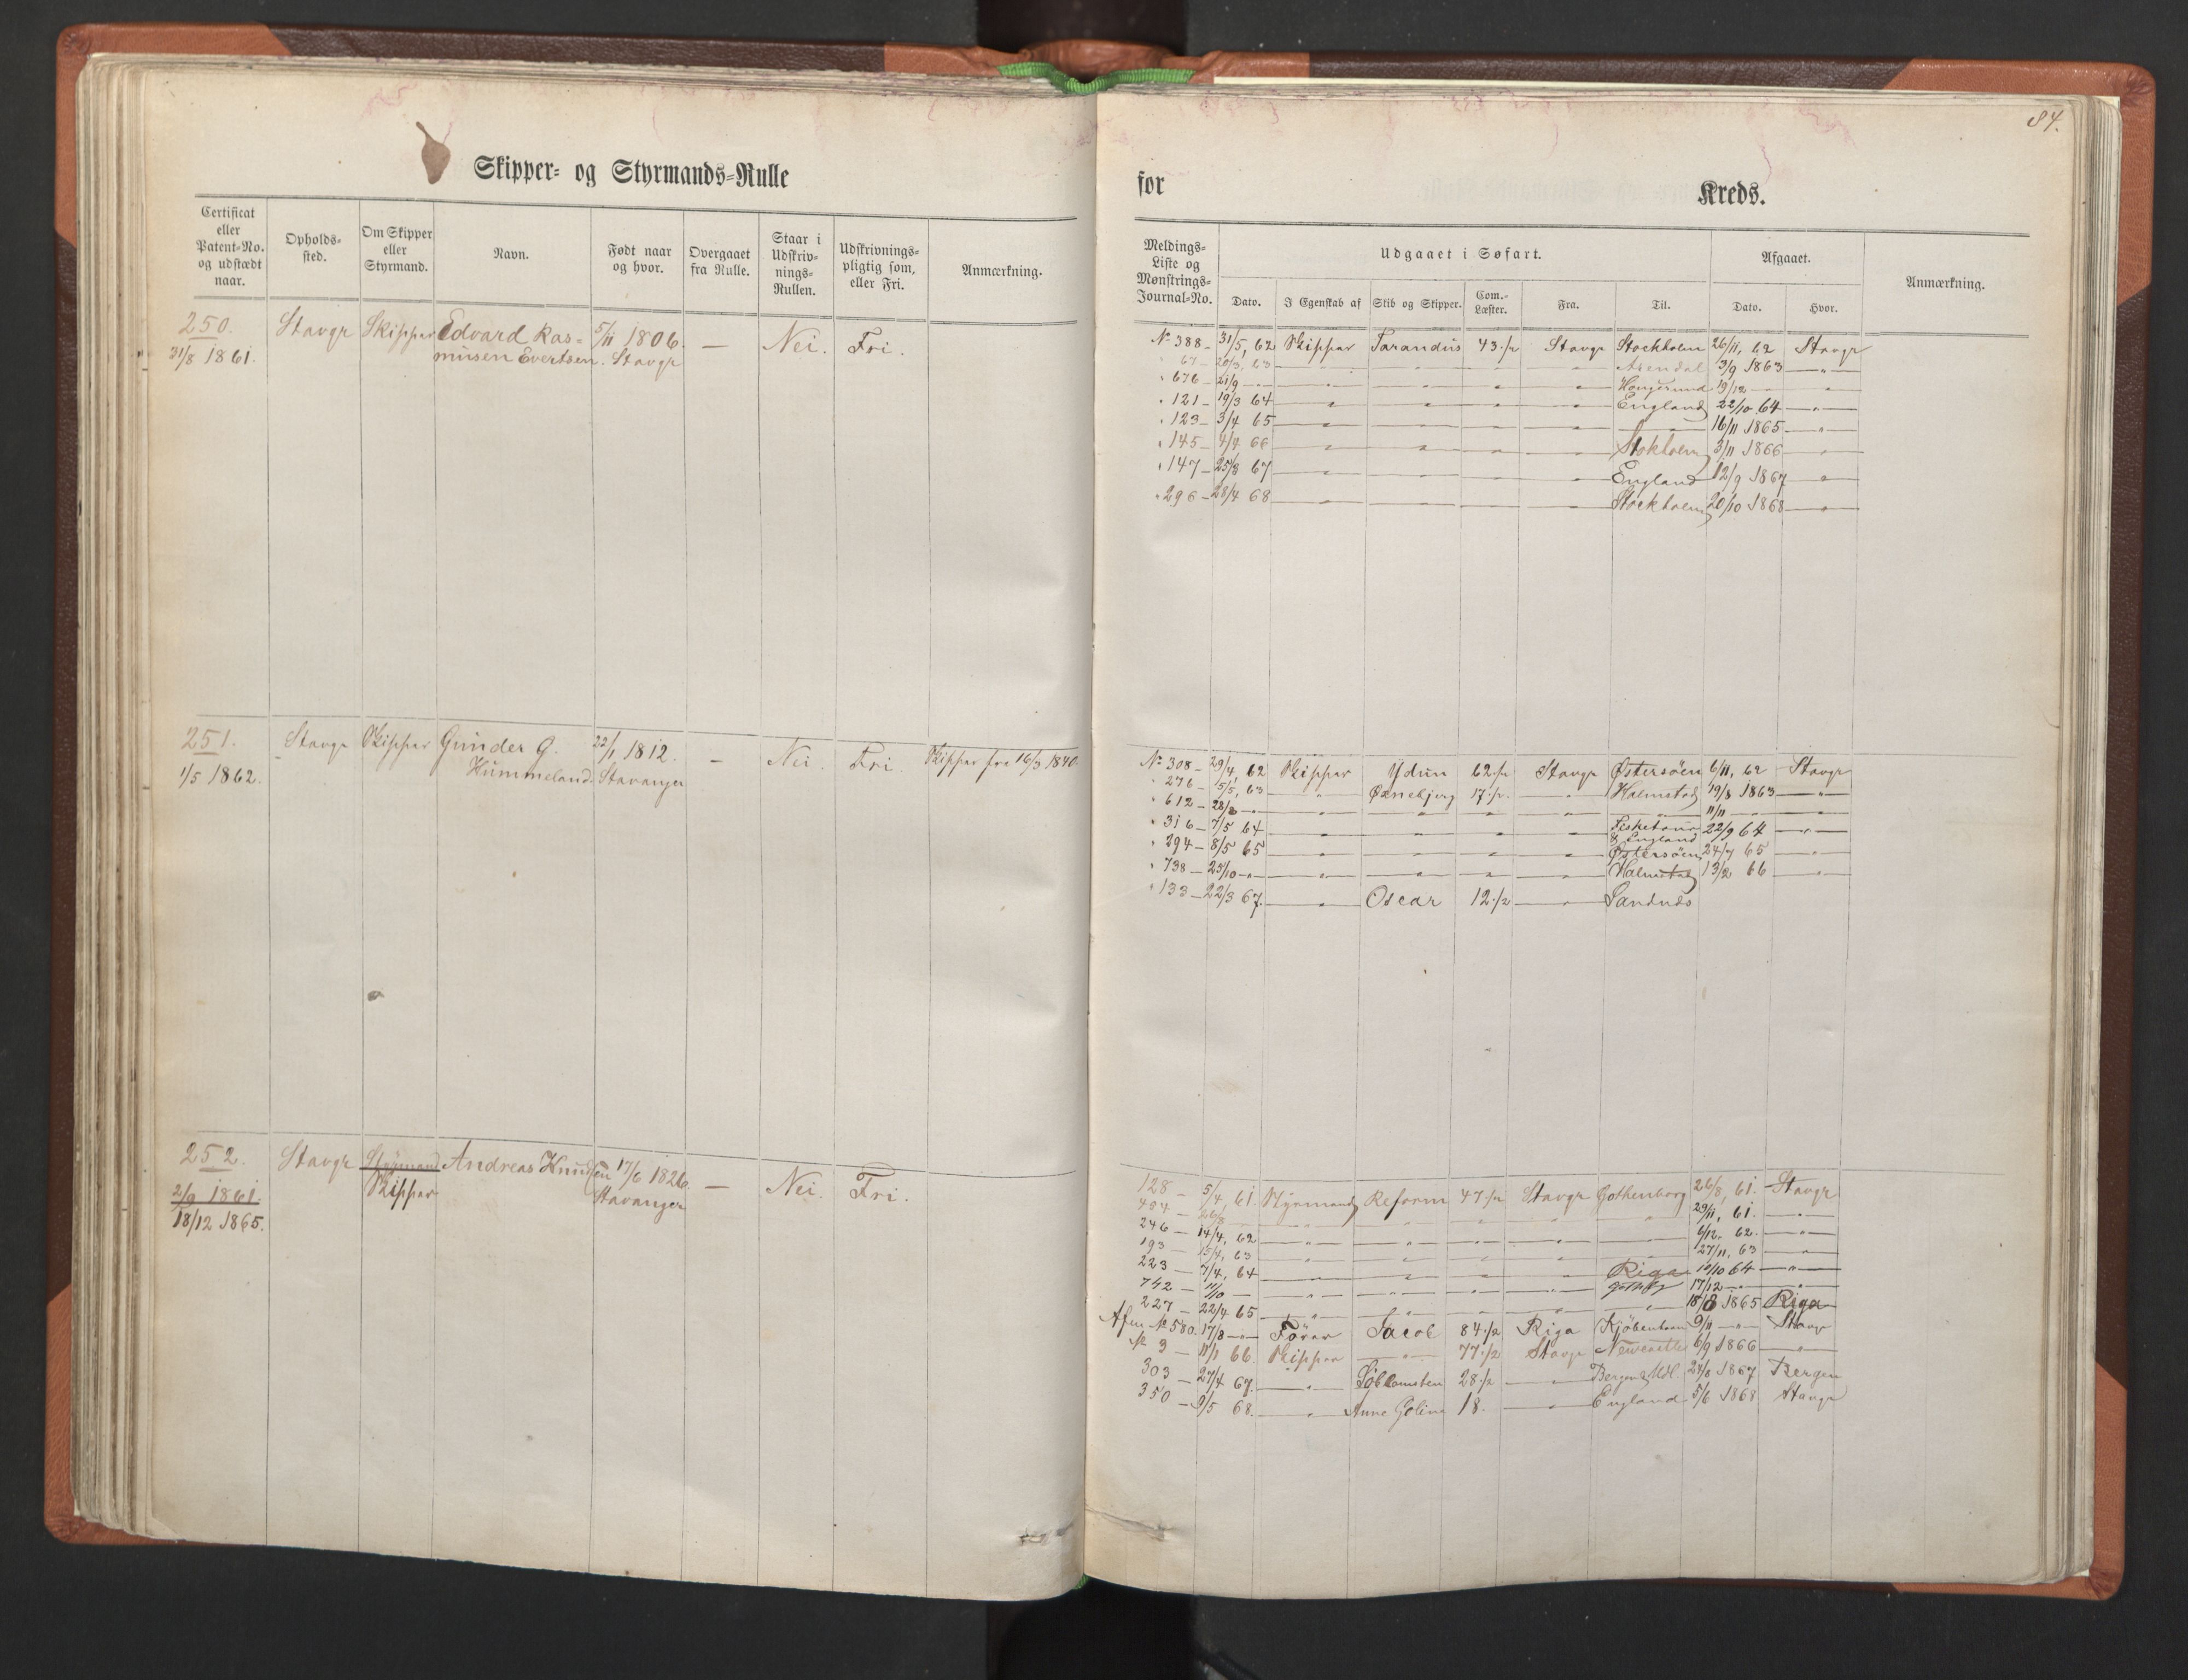 84.
Skipper- og Styrmands-Rulle
for
Kreds.
Certificat eller Patent-No. og udstædt naar.
Opholds-sted.
Om Skipper eller Styrmand.
Navn.
Født naar og hvor.
Overgaaet fra Rulle.
Staar i Udskriv-nings-Rullen.
Udskrivnings-pligtig som, eller Fri.
Anmærkning.
Meldings-Liste og Mønstrings-Journal-No.
Udgaaet i Søfart.
Dato.
I Egenskab af
Skib og Skipper.
Com.-Læster.
Fra.
Til.
Afgaaet.
Dato.
Hvor.
Anmærkning.
250. Stavgr Skipper Edvard Ras= 5/11 1806. — Nei. Fri.
31/8 1861. musen Evertsen. Stavgr
No 388 - 31/5, 62 Skipper Tarandus 43 ./2 Stavgr Stockholm 26/11, 62 Stavgr
" 67 - 20/3, 63 — " — " — " — " Arendal 3/9 1863 — " —
" 676 - 21/9 - " - — " — " — " — " 19/12 — "
" 121 - 19/3 64 — " — " — " — " England 22/10 64 — " —
" 123 - 3/4 65 — " — " — " — " — " — 16/11 1865 — " —
" 145 - 4/4 66 — " — " — " — " Stokholm 3/11 1866 — " —
" 147 - 25/3 67 — " — " — " — " England 12/9 1867 — " —
" 296 - 28/4 68 — " — " — " — " Stockholm 20/10 1868 — " —
251. Stavgr Skipper Gunder G. 22/1 1812. — Nei. Fri. Skipper fra 16/3 1840.
1/5 1862. Hummeland. Stavanger
No 308 - 29/4, 62 Skipper Ydun 62 ./2 Stavgr Østersöen 6/11, 62 Stavgr
" 276 - 15/5, 63 " Øxnebjerg 17 ./2. — " — Halmstad 19/8 1863 — " —
" 612 - 28/8 - " - — " — " — " — " — " — 11/11 — " — "
" 316 - 7/5 64 — " — " — " — " & England 22/9 64 — " —
" 294 - 8/5 65 — " — " — " — " Østersöen 24/7 65 — " —
" 738 - 25/10 - " - — " — " — " — " Halmstad 13/2 66 — " —
" 133 - 22/3 67. — " — Oscar 12 ./2 — " — Sandnæs
252. Stavgr Styrmand Andreas Knudsen 17/6 1826. — Nei. Fri.
2/9 1861. Skipper Stavanger
18/12 1865.
128 - 5/4 61. Styrmand Reform 47 ./2 Stavgr Gothenborg 26/8, 61. Stavgr
454 - 26/8 " " " " " 29/11, 61. — " —
246 - 14/4, 62 — " — " — " — " — " 6/12. 62. — " —
193 - 15/4, 63 — " — " — " — " — " 27/11, 63 — " —
223 - 7/4, 64 — " — " — " — " Riga 10/10 64 — " —
742 - 11/10 — — " — " — " — " Gothbg 17/12 - " — "
227 - 22/4 65 — " — " — " — " — " 18/8 1865 Riga
Afm. No 580. 17/8 - " - Förer Jacob 84 ./2 Riga Kjöbenhavn 9/11 — " — Stavgr
No 3 - 11/1 66. Skipper — " — 77 ./2 Stavgr Newcastle 6/9 1866 — " —
303 - 27/4 67. — " — Söblomsten 28 ./2 — " — 24/8 1867 Bergen
350 - 9/5 68. — " — Anne Goline 18. — " — England 5/6 1868 Stavgr